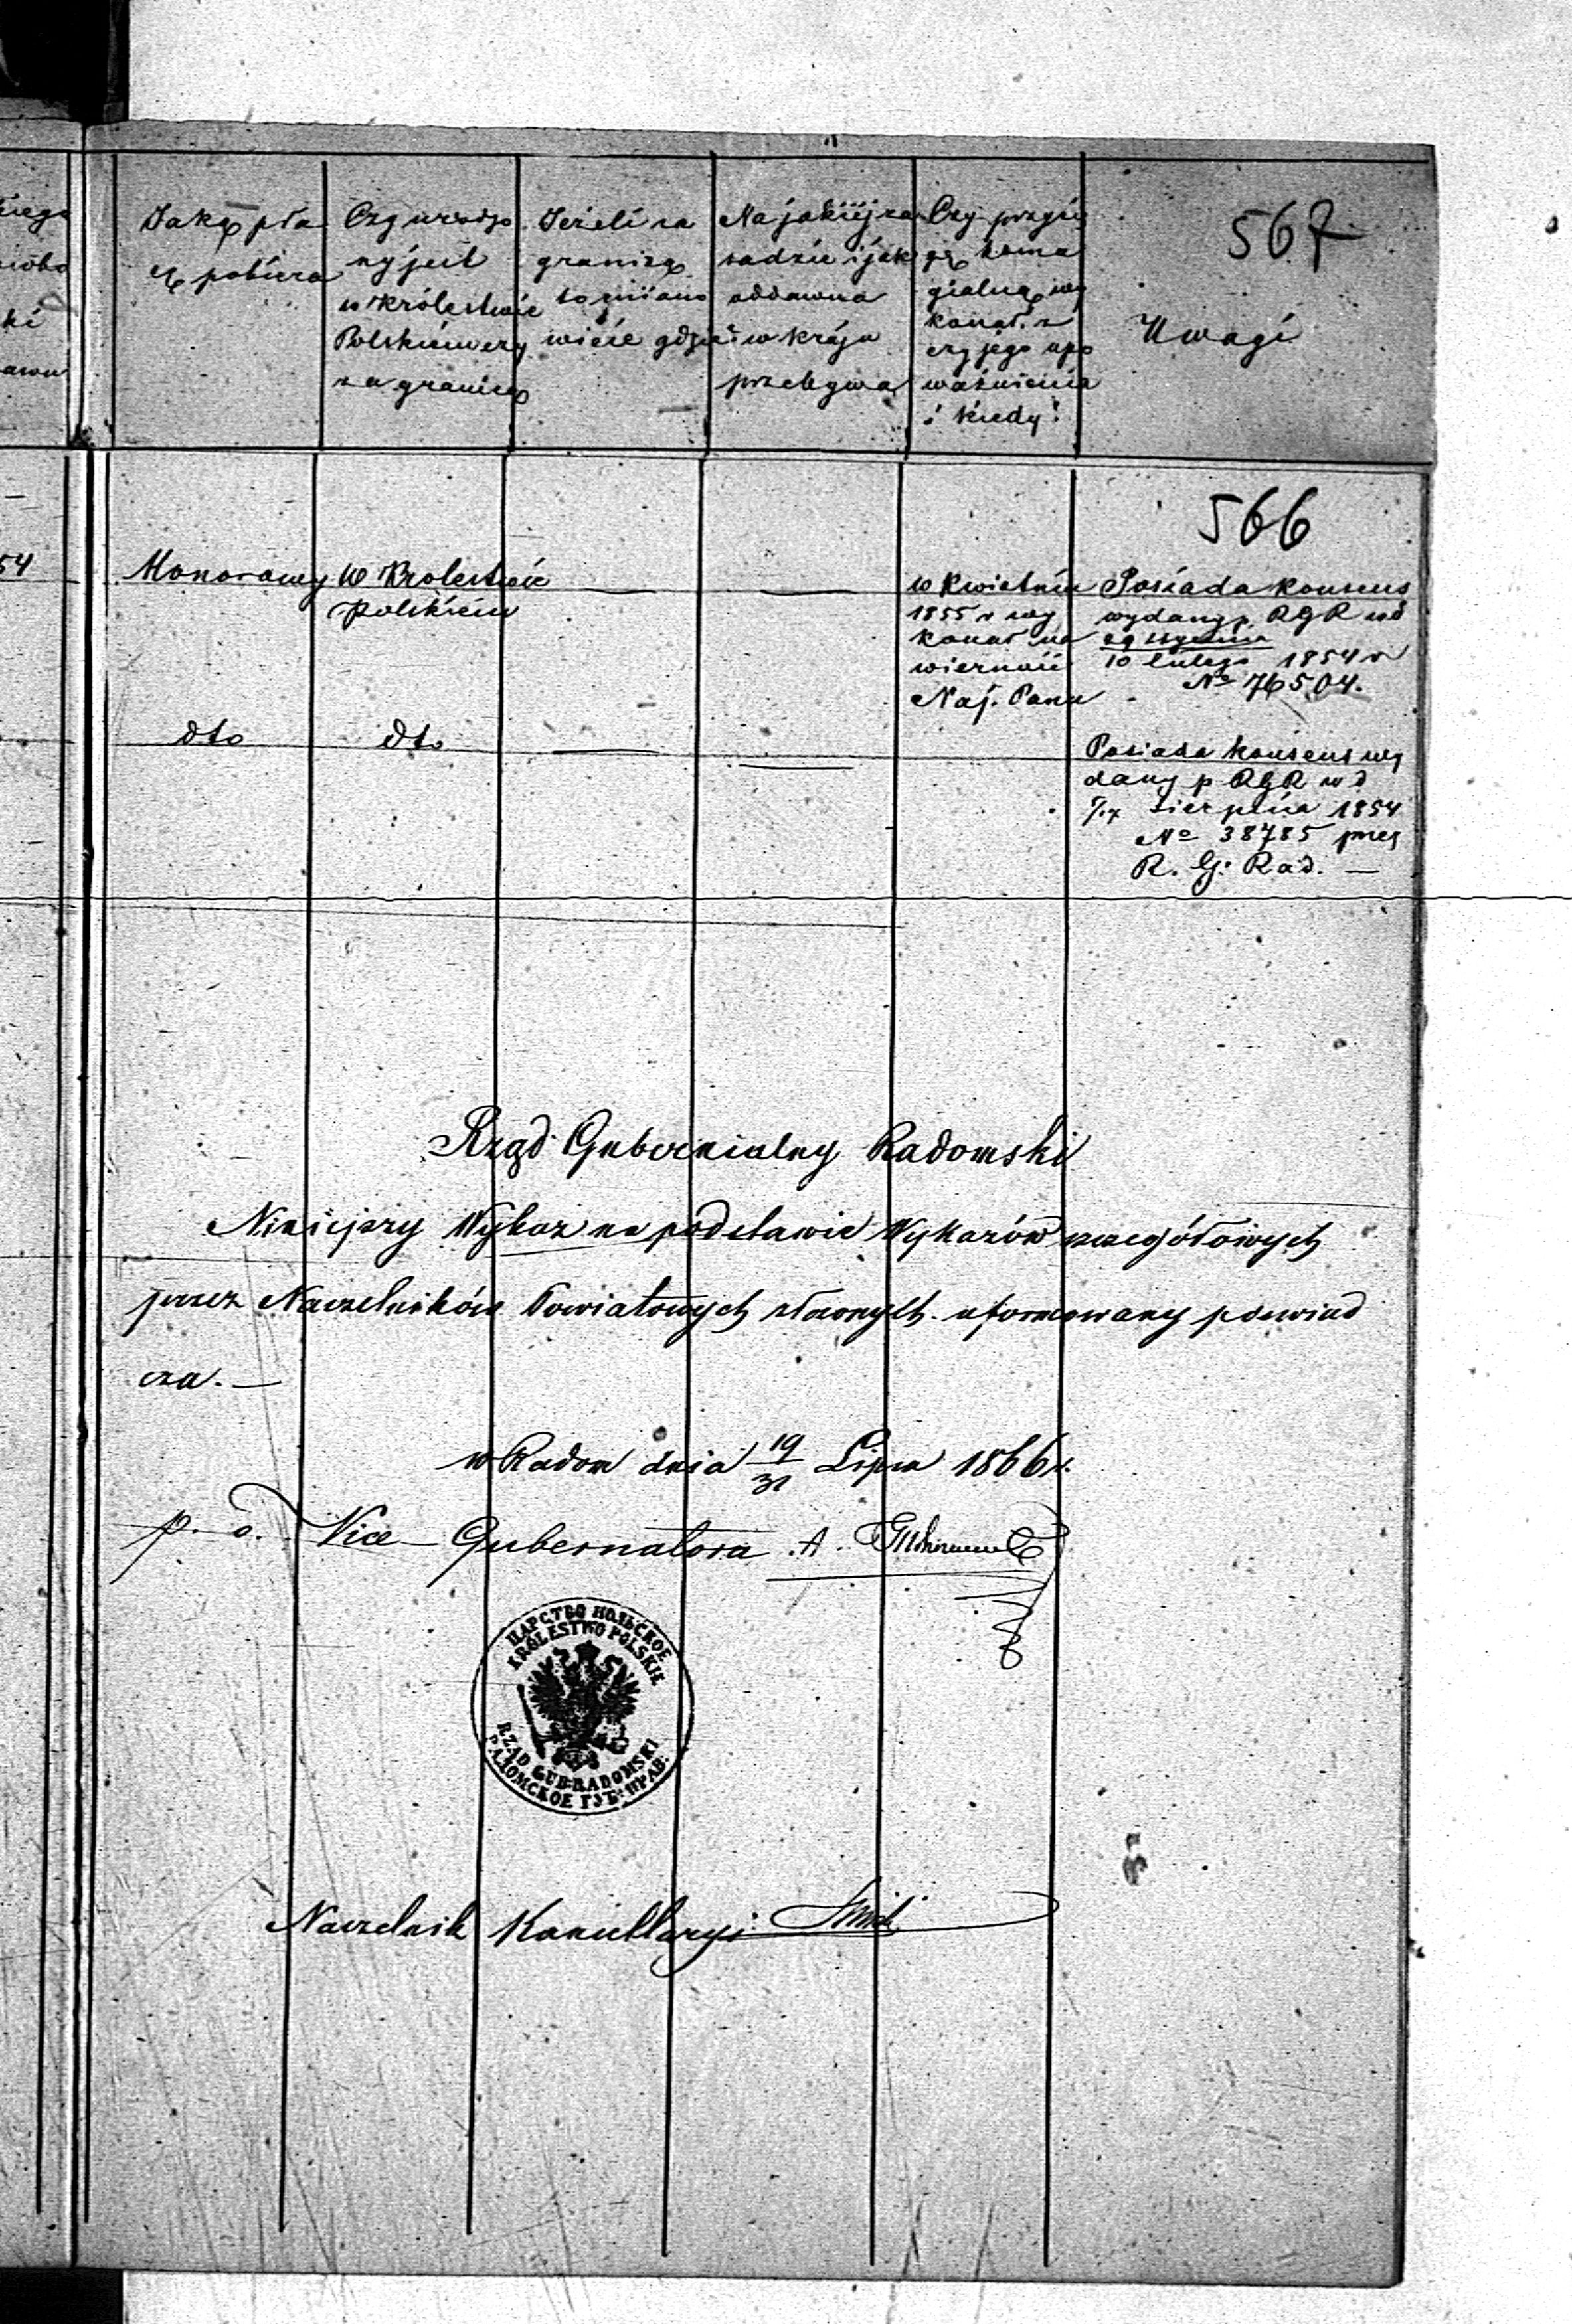 567
Jaką pła
cę pobiera
Czy urodzo
ny jest
w Królestwie
Polskiém czy
za granicą
Jeżeli za
granicą
to mian
wicie gdzie
Na jakiéj za
sadzie i jak
oddawna
w kraju
przebywa
Czy przysię
gę homa
gialną wy
konał z
czyjego upo
ważnienia
i kiedy?
Uwagi
566
54
Honorowy
W Królestwie
Polskiém
w Kwietniu
1855 r wy
konał na
wierność
Naj. Panu
Posiada konsens
wydany p. RGR
29 stycznia
10 lutego 1854 r
No 76504.
dto
dto
Posiada konsens wy
dany p RGR w d
Sierpnia 1854
No 38785 przez
R. G. Rad. —
Rząd Gubernialny Radomski
Niniejszy Wykaz na podstawie Wykazów szczegółowych
przez Naczelników Powiatowych złożonych uformowany poświad
cza. —
w Radom dnia 19/31 Lipca 1866 r.
p. o. Vice-Gubernatora A.
ЦАРСТВО ПОЛЬСКОЕ
KRÓLESTWO POLSKIE
RZĄD GUB. RADOMSKI
РАДОМСКОЕ ГУБ. ПРАВ.
Naczelnik Kancellaryi